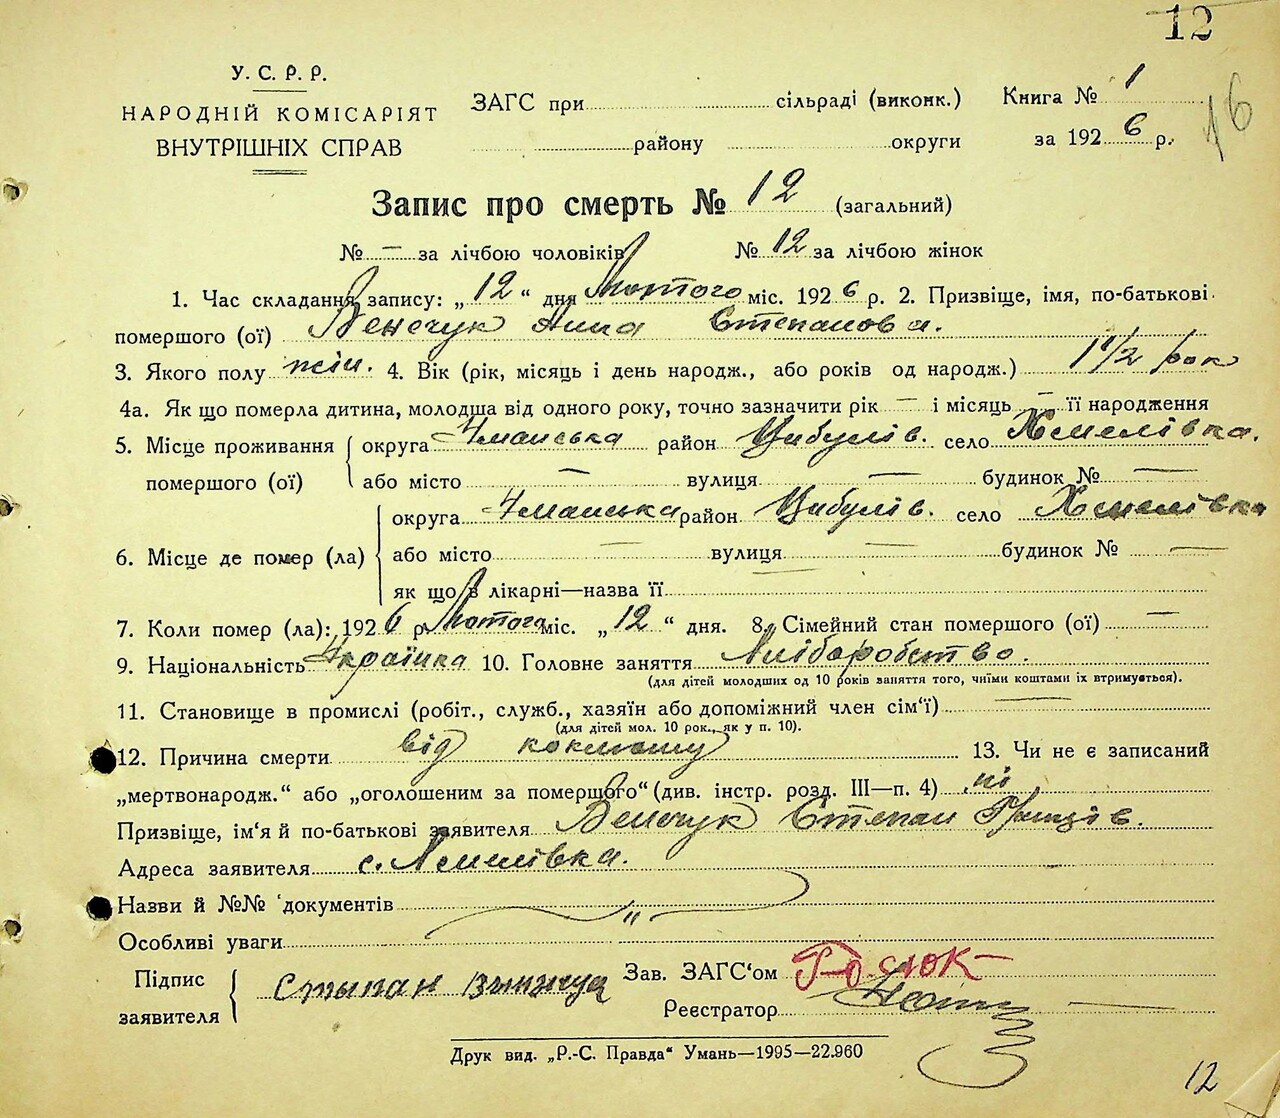 12
У. С. Р. Р.
НАРОДНІЙ КОМІСАРІЯТ
ВНУТРІШНІХ СПРАВ
ЗАГС при сільраді (виконк.) Книга № 1
району округи за 1926 р.
16
Запис про смерть № 12 (загальний)
№ — за лічбою чоловіків № 12 за лічбою жінок
1. Час складання запису: „12“ дня Лютого міс. 1926 р. 2. Призвіще, імя, по-батькові
помершого (ої) Венчук Анна Степанова.
3. Якого полу жін. 4. Вік (рік, місяць і день народж., або років од народж.) 1 1/2 рок
4а. Як що померла дитина, молодша від одного року, точно зазначити рік — і місяць — її народження
5. Місце проживання помершого (ої) округа Уманська район Цибулів. село Хмелівка.
або місто — вулиця — будинок № —
6. Місце де помер (ла) округа Уманська район Цибулів. село Хмелівка
або місто — вулиця — будинок № —
як що в лікарні—назва її
7. Коли помер (ла): 1926 р. Лютого міс. „12“ дня. 8. Сімейний стан помершого (ої) —
9. Національність Українка 10. Головне заняття Хліборобство.
(для дітей молодших од 10 років заняття того, чиїми коштами їх втримується).
11. Становище в промислі (робіт., служб., хазяїн або допоміжний член сім'ї) —
(для дітей мол. 10 рок., як у п. 10).
12. Причина смерти від коклюшу 13. Чи не є записаний
„мертвонародж.“ або „оголошеним за помершого“ (див. інстр. розд. III—п. 4) ні
Призвіще, ім'я й по-батькові заявителя Венчук Степан Гриців.
Адреса заявителя с. Хмелівка.
Назви й №№ документів "
Особливі уваги
Підпис заявителя Степан Зав. ЗАГС'ом
Реєстратор
Друк вид. „Р.-С. Правда“ Умань—1995—22.960
12